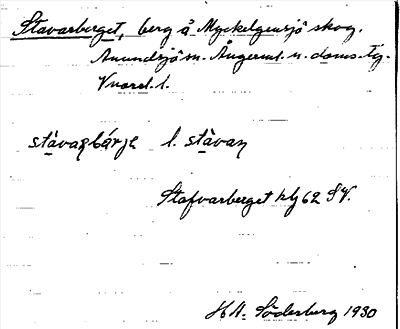 Stavarberget, berg å Myckelgensjö skog.
Anundsjö sn. Ångerml. n. doms. tg.
V nord. l.
stàvaṛbárjɛ l. stàvaṇ
Stafvarberget hlg 62 SV.
H A. Söderberg 1930